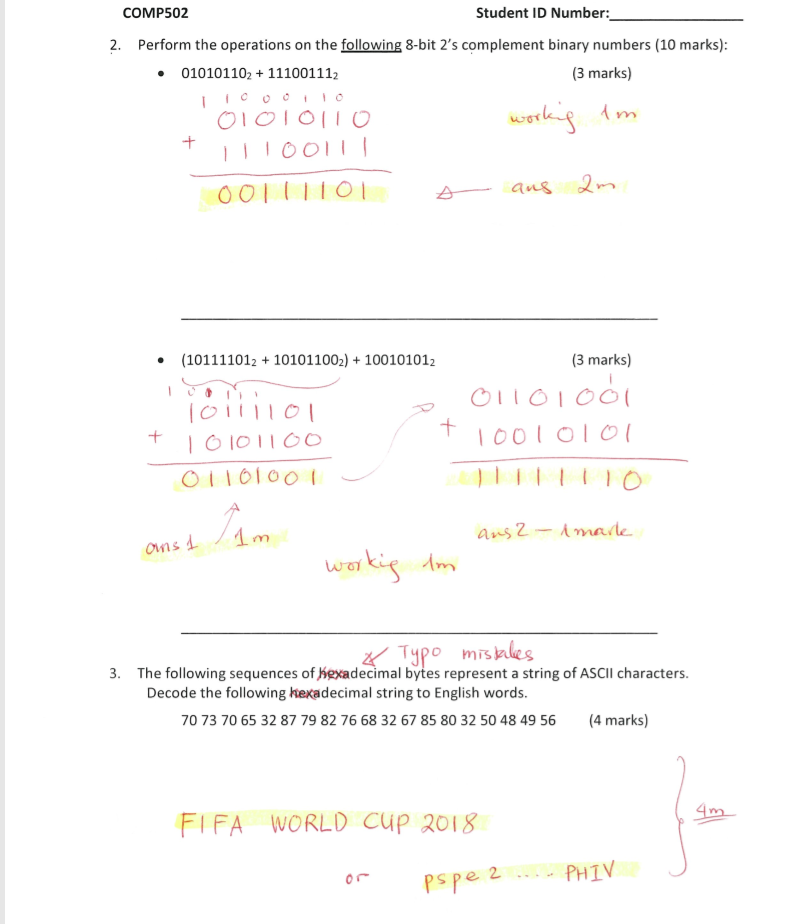 COMP502 Student ID Number:
2. Perform the operations on the following 8-bit 2's complement binary numbers (10 marks):
• 01010110₂ + 11100111₂ (3 marks)
1 1 0 0 0 1 1 0
01010110 working 1m
+ 11100111
00111101 ans 2m
• (10111101₂ + 10101100₂) + 10010101₂ (3 marks)
10111101 01101001
+ 10101100 + 10010101
01101001 11111110
ans 1 1m ans 2 – 1 mark
workig 1m
Typo mistakes
3. The following sequences of hexadecimal bytes represent a string of ASCII characters.
Decode the following hexadecimal string to English words.
70 73 70 65 32 87 79 82 76 68 32 67 85 80 32 50 48 49 56 (4 marks)
FIFA WORLD CUP 2018 4m
or pspe 2 .... PHIV